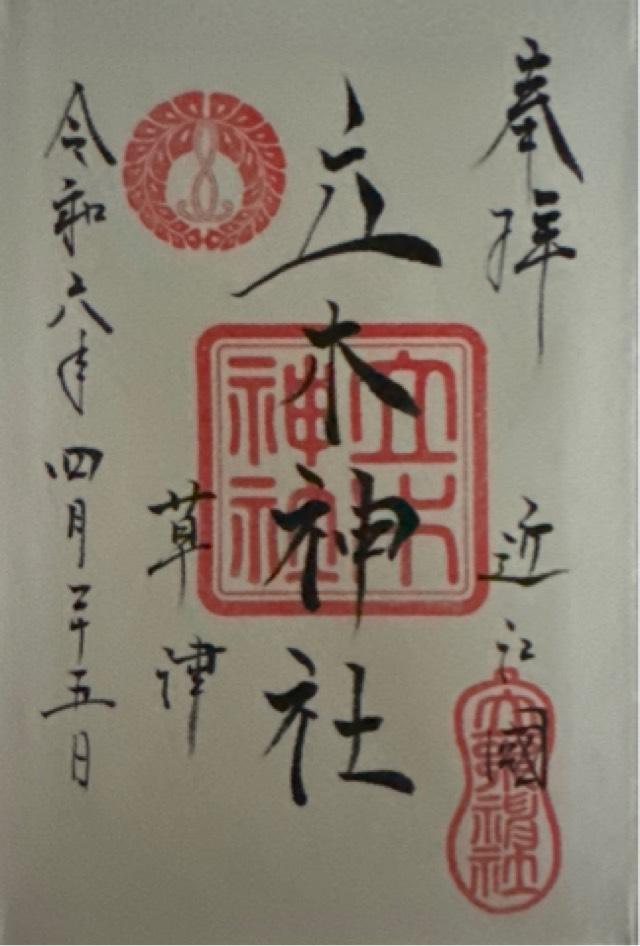 奉拝
近江國
立木神社
草津
令和六年四月二十五日
立木神社